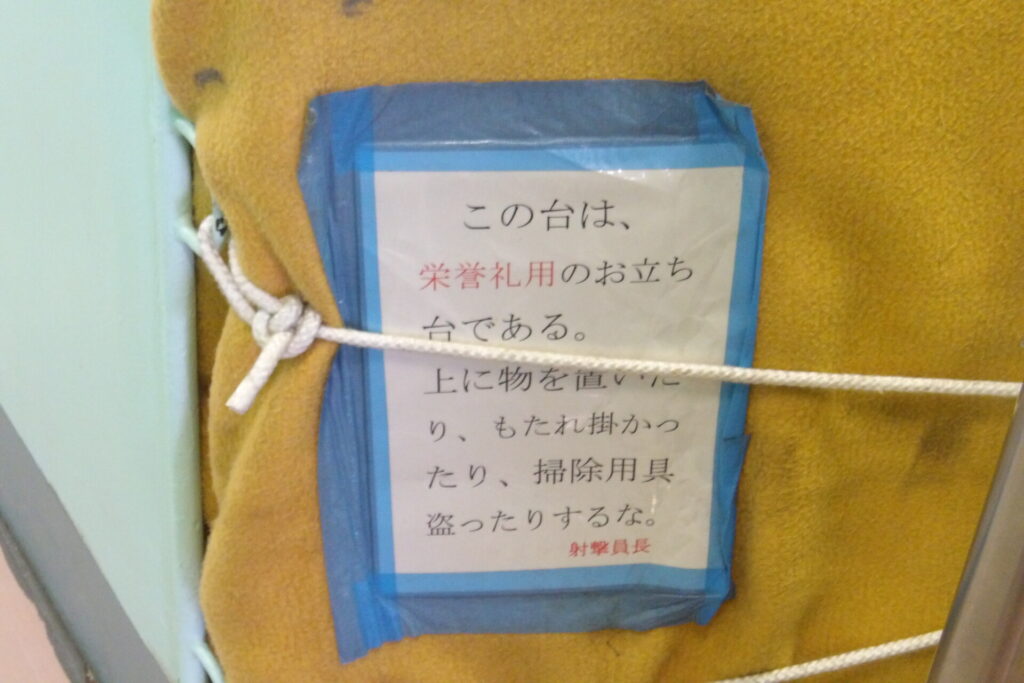 この台は、
栄誉礼用のお立ち
台である。
上に物を置いた
り、もたれ掛かっ
たり、掃除用具
盗ったりするな。
射撃員長